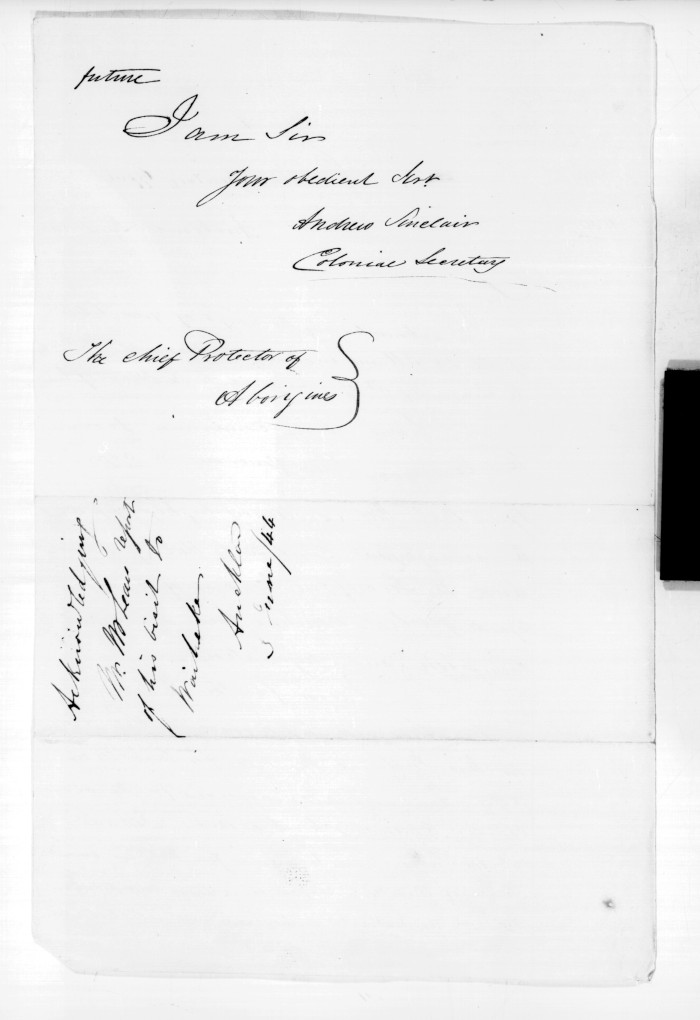 future
I am Sir
Your obedient Sert.
Andrew Sinclair
Colonial Secretary
The Chief Protector of
Aborigines
Acknowledging
Mr. McLeans report
of his visit to
Waiheke
Auckld
5 June/44